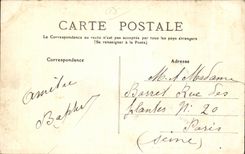 CARTE POSTALE
La Correspondance au recto n'est pas acceptée par tous les pays étrangers
(Se renseigner à la Poste)
Correspondance
Adresse
M. A Madame
Borret Rue des
plantes N: 20
Paris
(Seine)
amitié